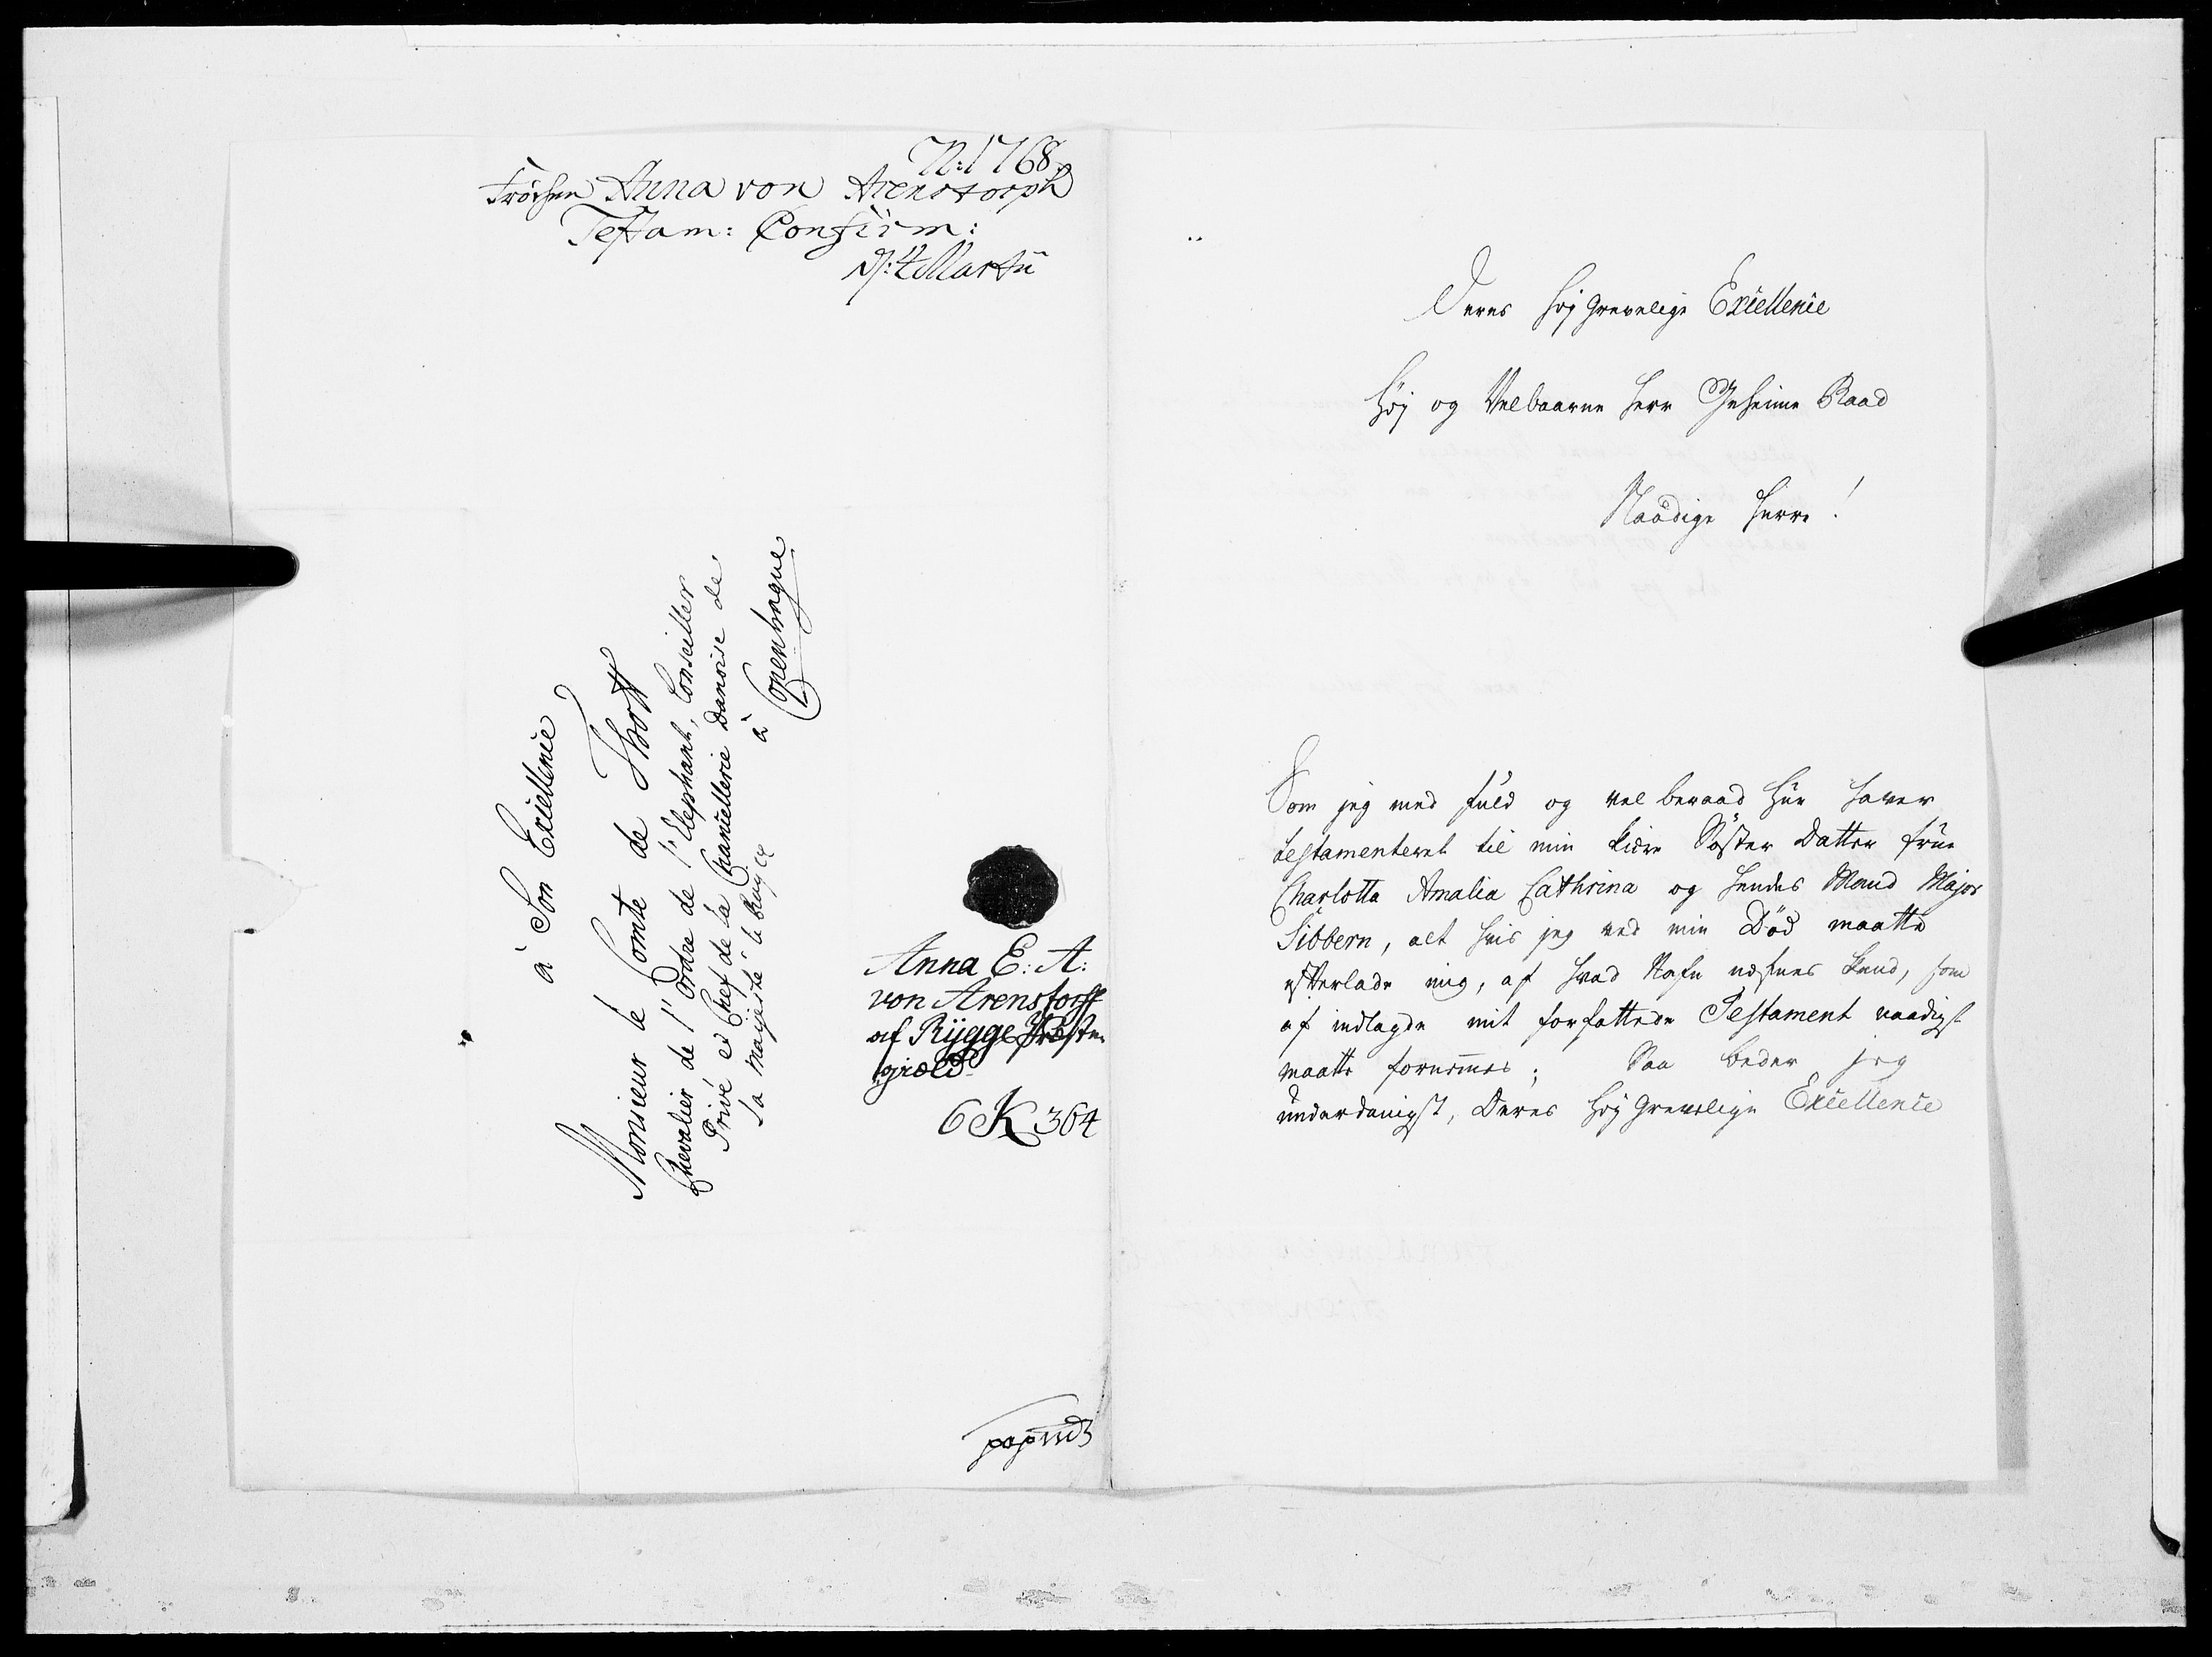 N: 1768.
Frøchen Anna von Arenstorph
Testam: Confirm:
d: 4 Martii
à Son Excellence
Monsieur le Comte de Thott
Chevalier de l'Ordre de l'Elephant, Conseiller
Privé et Chef de la Chancellerie Danoise de
Sa Majesté le Roy &c
à
Copenhague
Anna E: A:
von Arenstorff
af Rÿgge Præste-
giæld
6 K 364
Deres høj Grevelige Excellence
Høj og Velbaarne Herr Geheime Raad
Naadige Herre!
Som jeg med fuld og vel beraad Hue haver
testamenteret til min kiære Søster Datter Frue
Charlotta Amalia Cathrina og hendes Mand Major
Sibbern, alt hvis jeg ved min Død maatte
efterlade mig, af hvad Nafn nefnes kand, som
af indlagde mit forfattede Testament naadigst
maatte fornemmes; Saa beder jeg
underdanigst, Deres Høj Grevelige Excellence